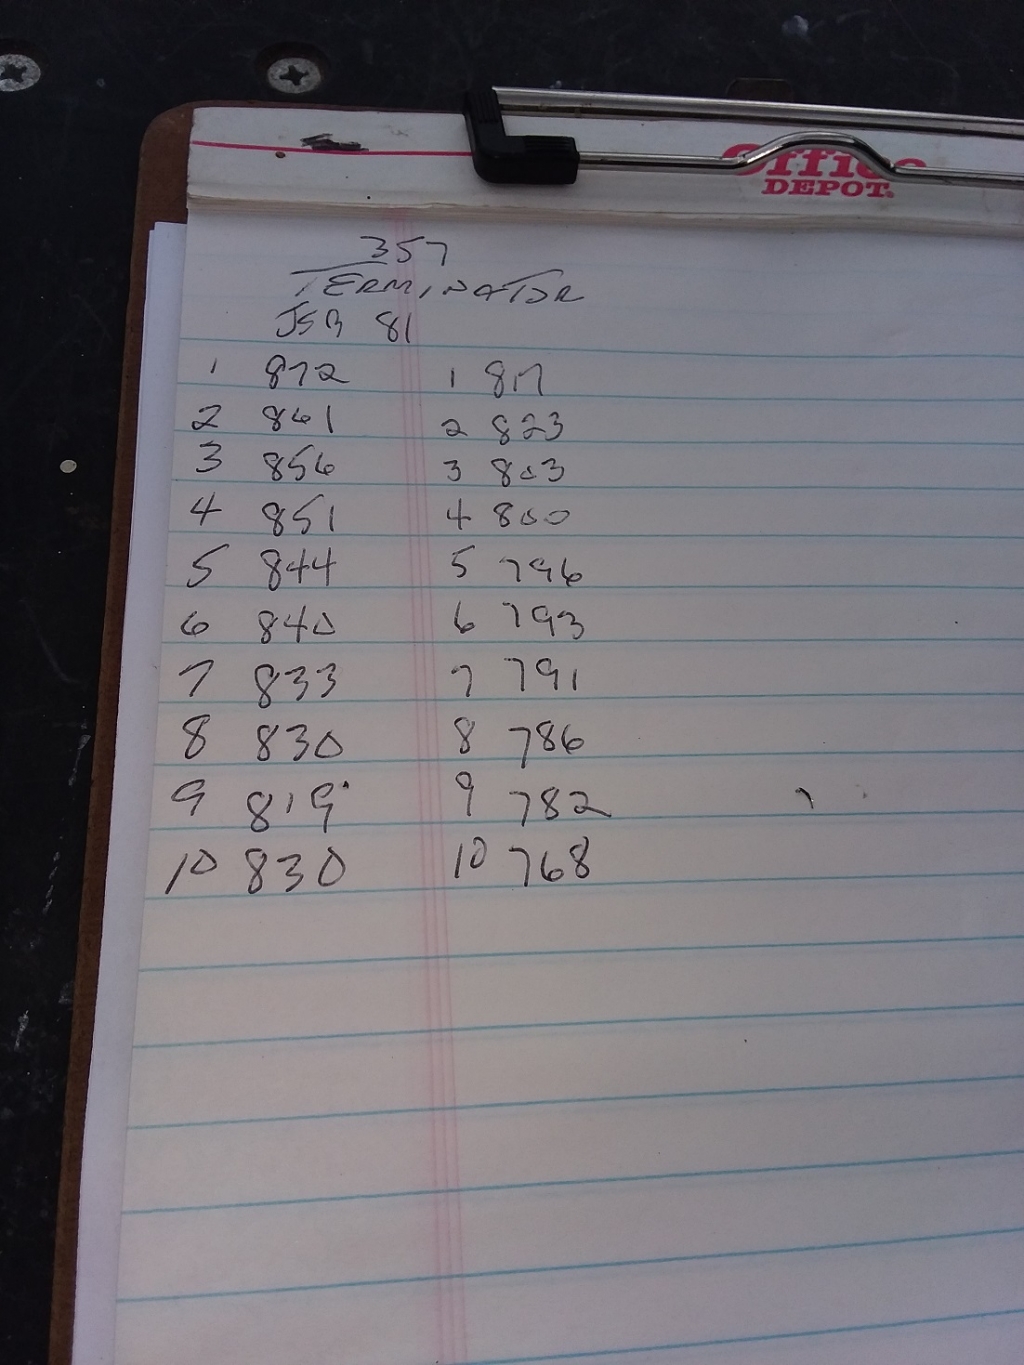 Office
DEPOT.
357
TERMINATOR
JSB 81
1 872 1 817
2 861 2 823
3 856 3 803
4 851 4 800
5 844 5 796
6 840 6 793
7 833 7 791
8 830 8 786
9 819 9 782
10 830 10 768